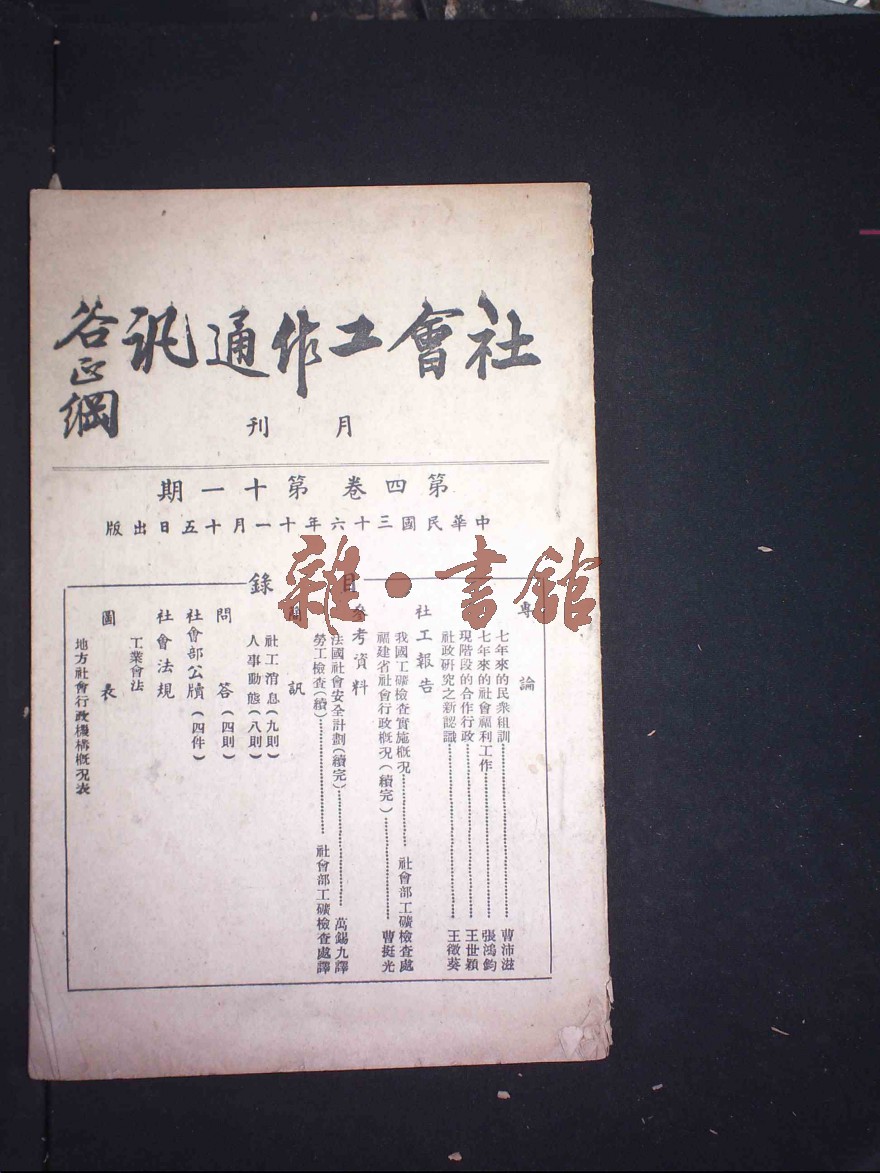 社會工作通訊
谷正綱
月刊
第四卷 第十一期
中華民國三十六年十一月十五日出版
目錄
專論
七年來的民衆組訓……曹沛滋
七年來的社會福利工作……張鴻鈞
現階段的合作行政……王世穎
社政研究之新認識……王徵葵
社工報告
我國工礦檢查實施概況……社會部工礦檢查處
福建省社會行政概況(續完)……曹挺光
參考資料
法國社會安全計劃(續完)……萬錫九譯
勞工檢查(續)……社會部工礦檢查處譯
簡訊
社工消息(九則)
人事動態(八則)
問答(四則)
社會部公牘(四件)
社會法規
工業會法
圖表
地方社會行政機構概況表
雜·書館